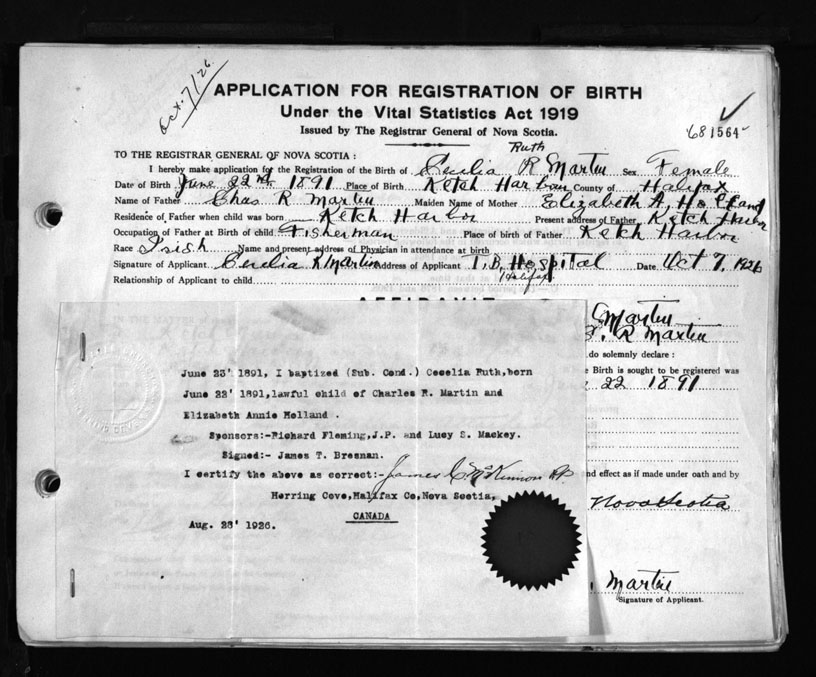 Oct. 7/26.
APPLICATION FOR REGISTRATION OF BIRTH
Under the Vital Statistics Act 1919
Issued by The Registrar General of Nova Scotia.
681564
Ruth
TO THE REGISTRAR GENERAL OF NOVA SCOTIA :
I hereby make application for the Registration of the Birth of Cecelia R Martin Sex Female
Date of Birth June 22nd 1891 Place of Birth Ketch Harbour County of Halifax
Name of Father Chas R Martin Maiden Name of Mother Elizabeth A. Holland
Residence of Father when child was born Ketch Harbor Present address of Father Ketch Harbor
Occupation of Father at Birth of child Fisherman Place of birth of Father Ketch Harbor
Race Irish Name and present address of Physician in attendance at birth
Signature of Applicant Cecelia R Martin Address of Applicant T.B. Hospital Date Oct 7, 1926
Relationship of Applicant to child Halifax
AFFIDAVIT
Martin
R Martin
do solemnly declare :
Birth is sought to be registered was
22 1891
June 23' 1891, I baptized (Sub. Cond.) Cecelia Ruth,born
June 22' 1891,lawful child of Charles R. Martin and
Elizabeth Annie Holland .
Sponsors:-Richard Fleming,J.P. and Lucy S. Mackey.
Signed:- James T. Bresnan.
I certify the above as correct:- James C. McKinnon P.P.
and effect as if made under oath and by
Herring Cove,Halifax Co,Nova Scotia,
Nova Scotia
CANADA
Aug. 23' 1926.
Martin
Signature of Applicant.